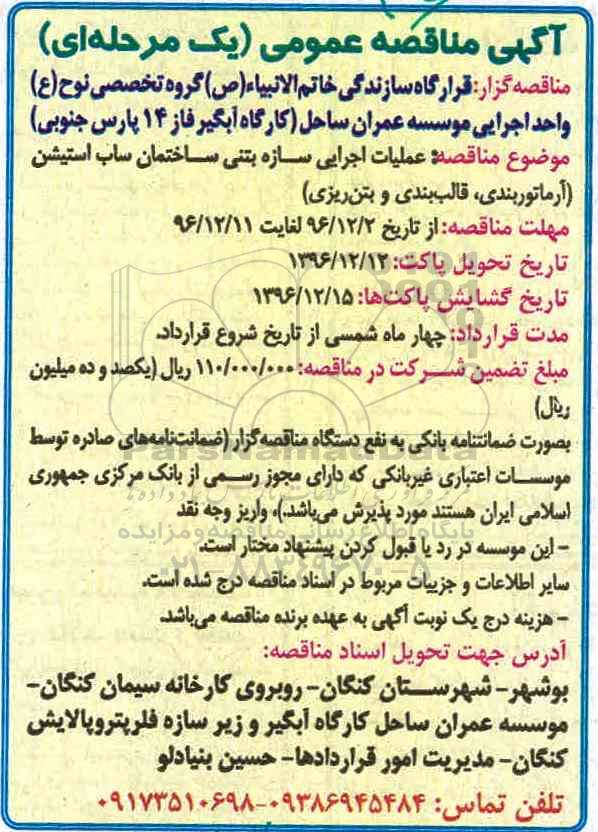 آگهی مناقصه عمومی (یک مرحله‌ای)
مناقصه‌گزار: قرارگاه سازندگی خاتم الانبیاء(ص) گروه تخصصی نوح(ع)
واحد اجرایی موسسه عمران ساحل (کارگاه آبگیر فاز ۱۴ پارس جنوبی)
موضوع مناقصه: عملیات اجرایی سازه بتنی ساختمان ساب استیشن
(آرماتوربندی، قالب‌بندی و بتن‌ریزی)
مهلت مناقصه: از تاریخ ۹۶/۱۲/۲ لغایت ۹۶/۱۲/۱۱
تاریخ تحویل پاکت: ۱۳۹۶/۱۲/۱۲
تاریخ گشایش پاکت‌ها: ۱۳۹۶/۱۲/۱۵
مدت قرارداد: چهار ماه شمسی از تاریخ شروع قرارداد.
مبلغ تضمین شرکت در مناقصه: ۱۱۰/۰۰۰/۰۰۰ ریال (یکصد و ده میلیون
ریال)
بصورت ضمانتنامه بانکی به نفع دستگاه مناقصه‌گزار (ضمانت‌نامه‌های صادره توسط
موسسات اعتباری غیربانکی که دارای مجوز رسمی از بانک مرکزی جمهوری
اسلامی ایران هستند مورد پذیرش می‌باشد.)، واریز وجه نقد
- این موسسه در رد یا قبول کردن پیشنهاد مختار است.
سایر اطلاعات و جزییات مربوط در اسناد مناقصه درج شده است.
- هزینه درج یک نوبت آگهی به عهده برنده مناقصه می‌باشد.
آدرس جهت تحویل اسناد مناقصه:
بوشهر- شهرستان کنگان- روبروی کارخانه سیمان کنگان-
موسسه عمران ساحل کارگاه آبگیر و زیر سازه فلرپتروپالایش
کنگان- مدیریت امور قراردادها- حسین بنیادلو
تلفن تماس: ۰۹۳۸۶۹۴۵۴۸۴-۰۹۱۷۳۵۱۰۶۹۸
ParsNamadData
پایگاه اطلاع رسانی مناقصه و مزایده
۰۲۱-۸۸۳۴۹۶۷۰-۵